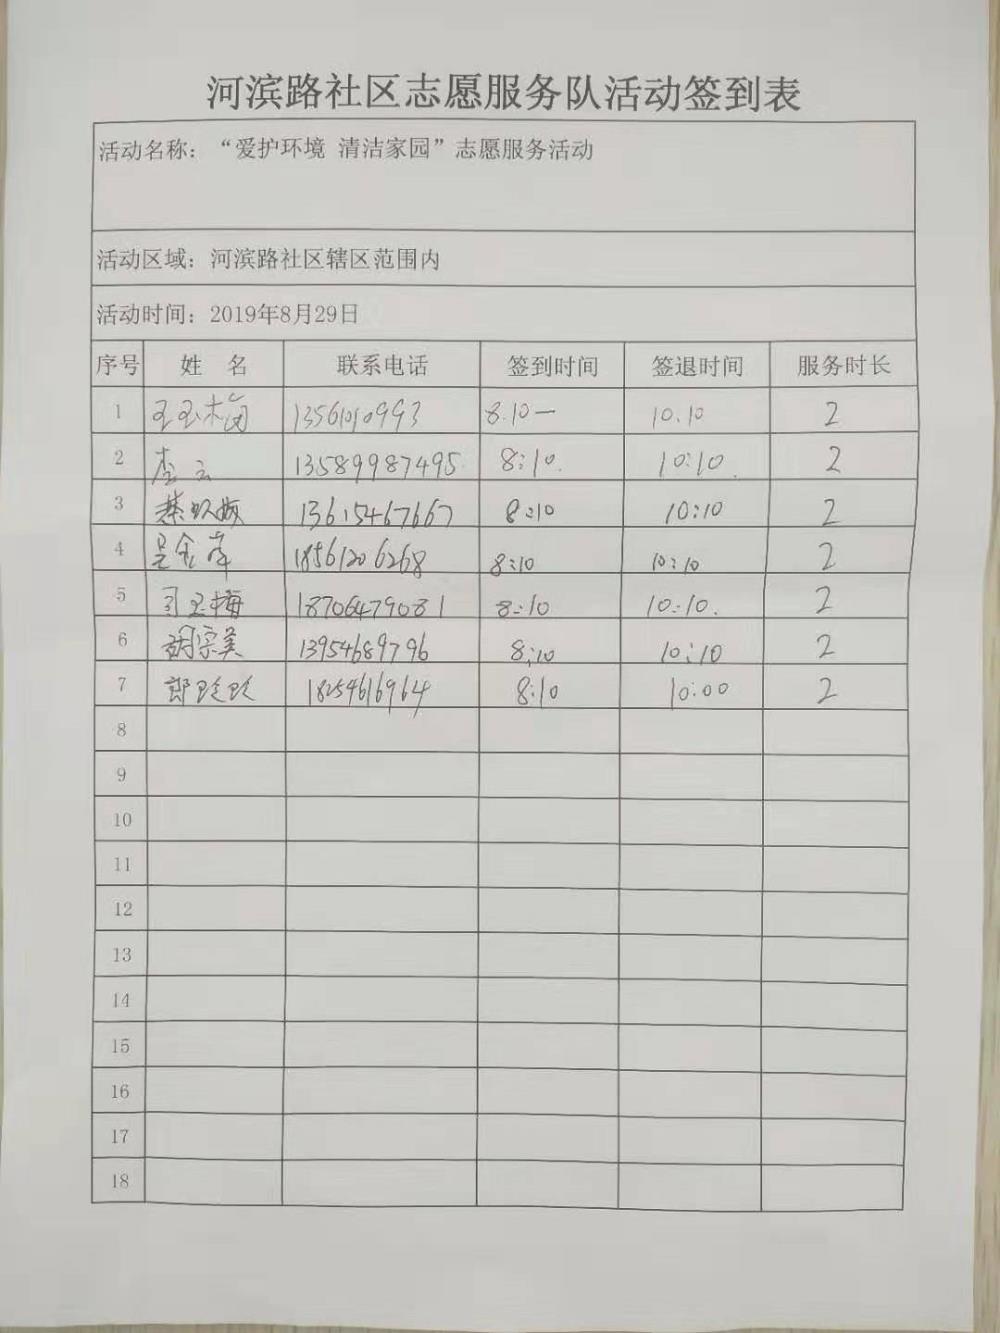 河滨路社区志愿服务队活动签到表
活动名称：“爱护环境 清洁家园”志愿服务活动
活动区域：河滨路社区辖区范围内
活动时间：2019年8月29日
序号 姓 名 联系电话 签到时间 签退时间 服务时长
1 王玉梅 13561010993 8.10一 10.10 2
2 李云 13589987495 8:10. 10:10. 2
3 13615467667 8:10 10:10 2
4 吴金萍 18561206268 8:10 10:10 2
5 司玉梅 18706479081 8:10 10:10. 2
6 胡宗美 13954689796 8:10 10:10 2
7 郭玲玲 18254616964 8:10 10:00 2
8
9
10
11
12
13
14
15
16
17
18